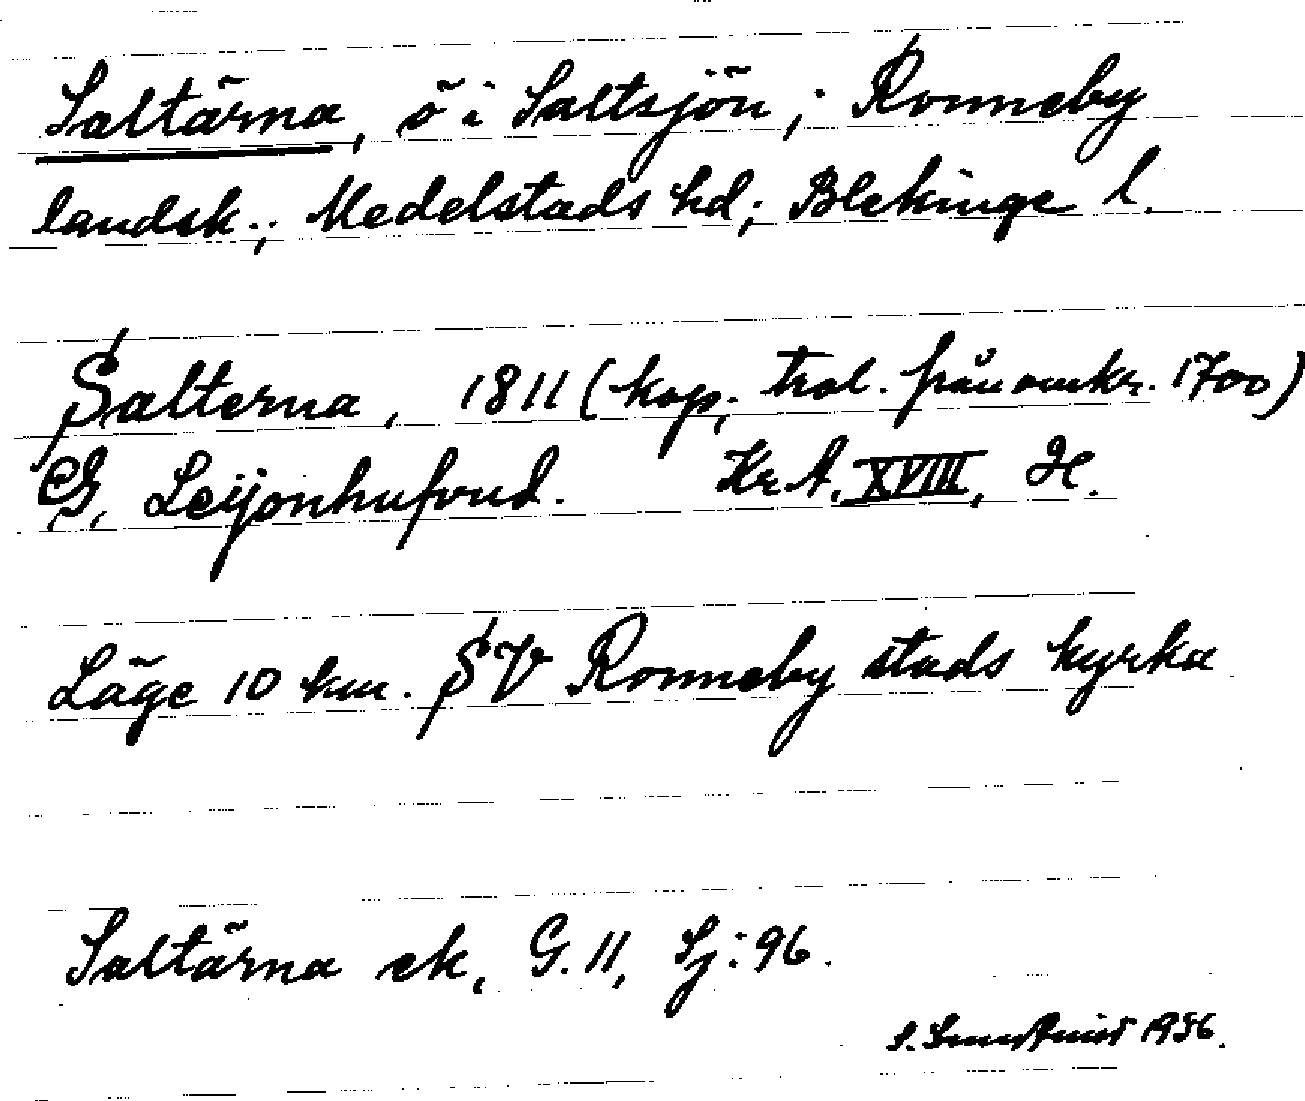 Saltärna, ö i Saltsjön; Ronneby
landsk.; Medelstads hd; Blekinge l.
Salterna, 1811 (kop, trol. från omkr. 1700)
G, Leijonhufvud. Kr A. XVIII, H.
Läge 10 km. SV Ronneby stads kyrka
Saltärna ek, G. 11, Sj: 96.
S. 1956.